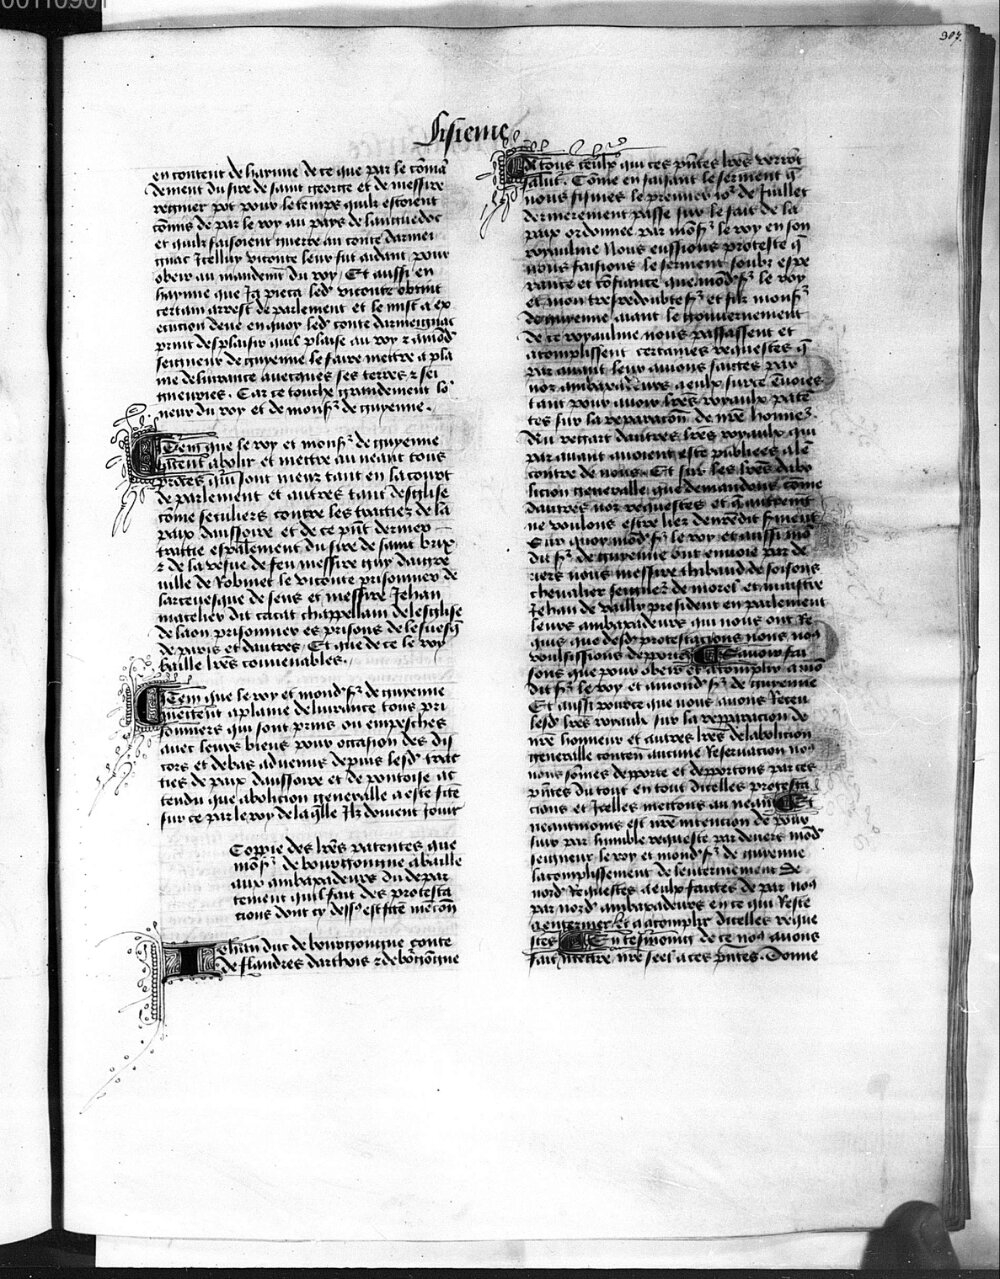 00110901
307.
Sisieme
en content de hayme de ce que par le cōma
dement du sire de saint george et de messire
regnier pot pour le temps quilz estoient
cōmis de par le roy au pays de languedoc
et quilz faisoient guerre au conte darmei
gnac Icelluy viconte leur fut aidant pour
obeir au mandemt du roy / Et aussi en
hayme que Ja pieca led viconte obtint
certain arrest de parlement et le mist a ex
ecution deue en quoy led conte darmeignac
print desplaisir quil plaise au roy z a mōd
seigneur de guyenne le faire mettre a pla
ine deliurance auecques ses terres z sei
gneuries. Car ce touche grandement lo
neur du roy et de monsr de guyenne.
Item que le roy et monsr de guyenne
facent abolir et mettre au neant tous
proces qui sont meuz tant en la court
de parlement et autres tant deglise
cōme seculiers contre les traictiez de la
paix daussoire et de ce pn̄t dernier
traittie esp̄alement du sire de saint brix
z de la vefue de feu messire guy daigre
ville de Robinet le viconte prisonnier de
larceuesque de sens et messire Jehan
matelier dit tacat chappellain de leglise
de laon prisonnier es prisons de leuesq̄
de paris et dautres / Et que de ce le roy
baille lrēs conuenables.
Item que le roy et mond sr de guyenne
mettent a plaine deliurance tous pri
sonniers qui sont prins ou empeschez
auec leurs biens pour occasion des dis
cors et debas aduenus depuis lesd traic
ties de paix daussoire et de pontoise at
tendu que abolition generalle a este fcte
sur ce par le roy de la q̄lle Ilz doiuent Jouir
Coppie des lrēs patentes que
monsr de bourgongne a baille
aux ambaxadeurs du depar
tement quil fait des protesta
cions dont cy dess9 est fcte mēcōn
Jehan duc de bourgongne conte
de flandres darthois z de bōrgōgne
A tous ceulx qui ces pn̄tes lrēs verrōt
salut. Cōme en faisant le serment q̄
nous fismes le premier Jor de Juillet
dernierement passe sur le fait de la
paix ordonnee par monsr le roy en son
royaulme Nous eussions proteste q̄
nous faisions le serment soubz espe
rance et cōfiance que mondsr le roy
et mon tresredoubte sr et filz monsr
de guyenne aiant le gouuernement
de ce royaulme nous passassent et
acomplissent certaines requestes q̄
par auant leur auions faictes par
noz ambaxadeurs a eulx sur ce enuoies
tant pour auoir lrēs royaulx paten
tes sur la reparacōn de nrē honneur
Au regart dautres lrēs royaulx qui
par auant auoient este publiees a lē
contre de nous / Et sur les lrēs dabo
licion generalle que demandons cōme
dautres noz requestes et q̄ autremt
ne voulions estre liez dud serment
Sur quoy mond sr le roy et aussi mō
dit sr de guyenne ont enuoie par de
uers nous messire thibaud de soisons
cheualier seignr de morel et maistre
Jehan de vailly president en parlement
leurs ambaxadeurs qui nous ont Re
quis que desd protestacions nous no9
voulsissions deporter Sauoir fai
sons que pour obeir et acomplir a mō
dit sr le roy et a mond sr de guyenne
Et aussi pource que nous auons Receu
lesd lrēs royaulx sur la reparacion de
nrē honneur et autres lrēs de labolicion
generalle contenn̄ aucune Reseruacion no9
nous sōmes deporte et deportons par ces
pn̄tes du tout en tout dicelles protesta
cions et Icelles mettons au neant Et
neantmoins est nrē intencion de pour
suir par humble requeste par deuers mōd
seigneur le roy et mond sr de guyenne
lacomplissement de lenterinement de
nosd Requestes a eulx faictes de par no9
par nosd ambaxadeurs en ce qui Reste
a enteriner et a acomplir dicelles reque
stes En tesmoing de ce no9 auons
fait mettre nrē seel a ces pn̄tes. Donne